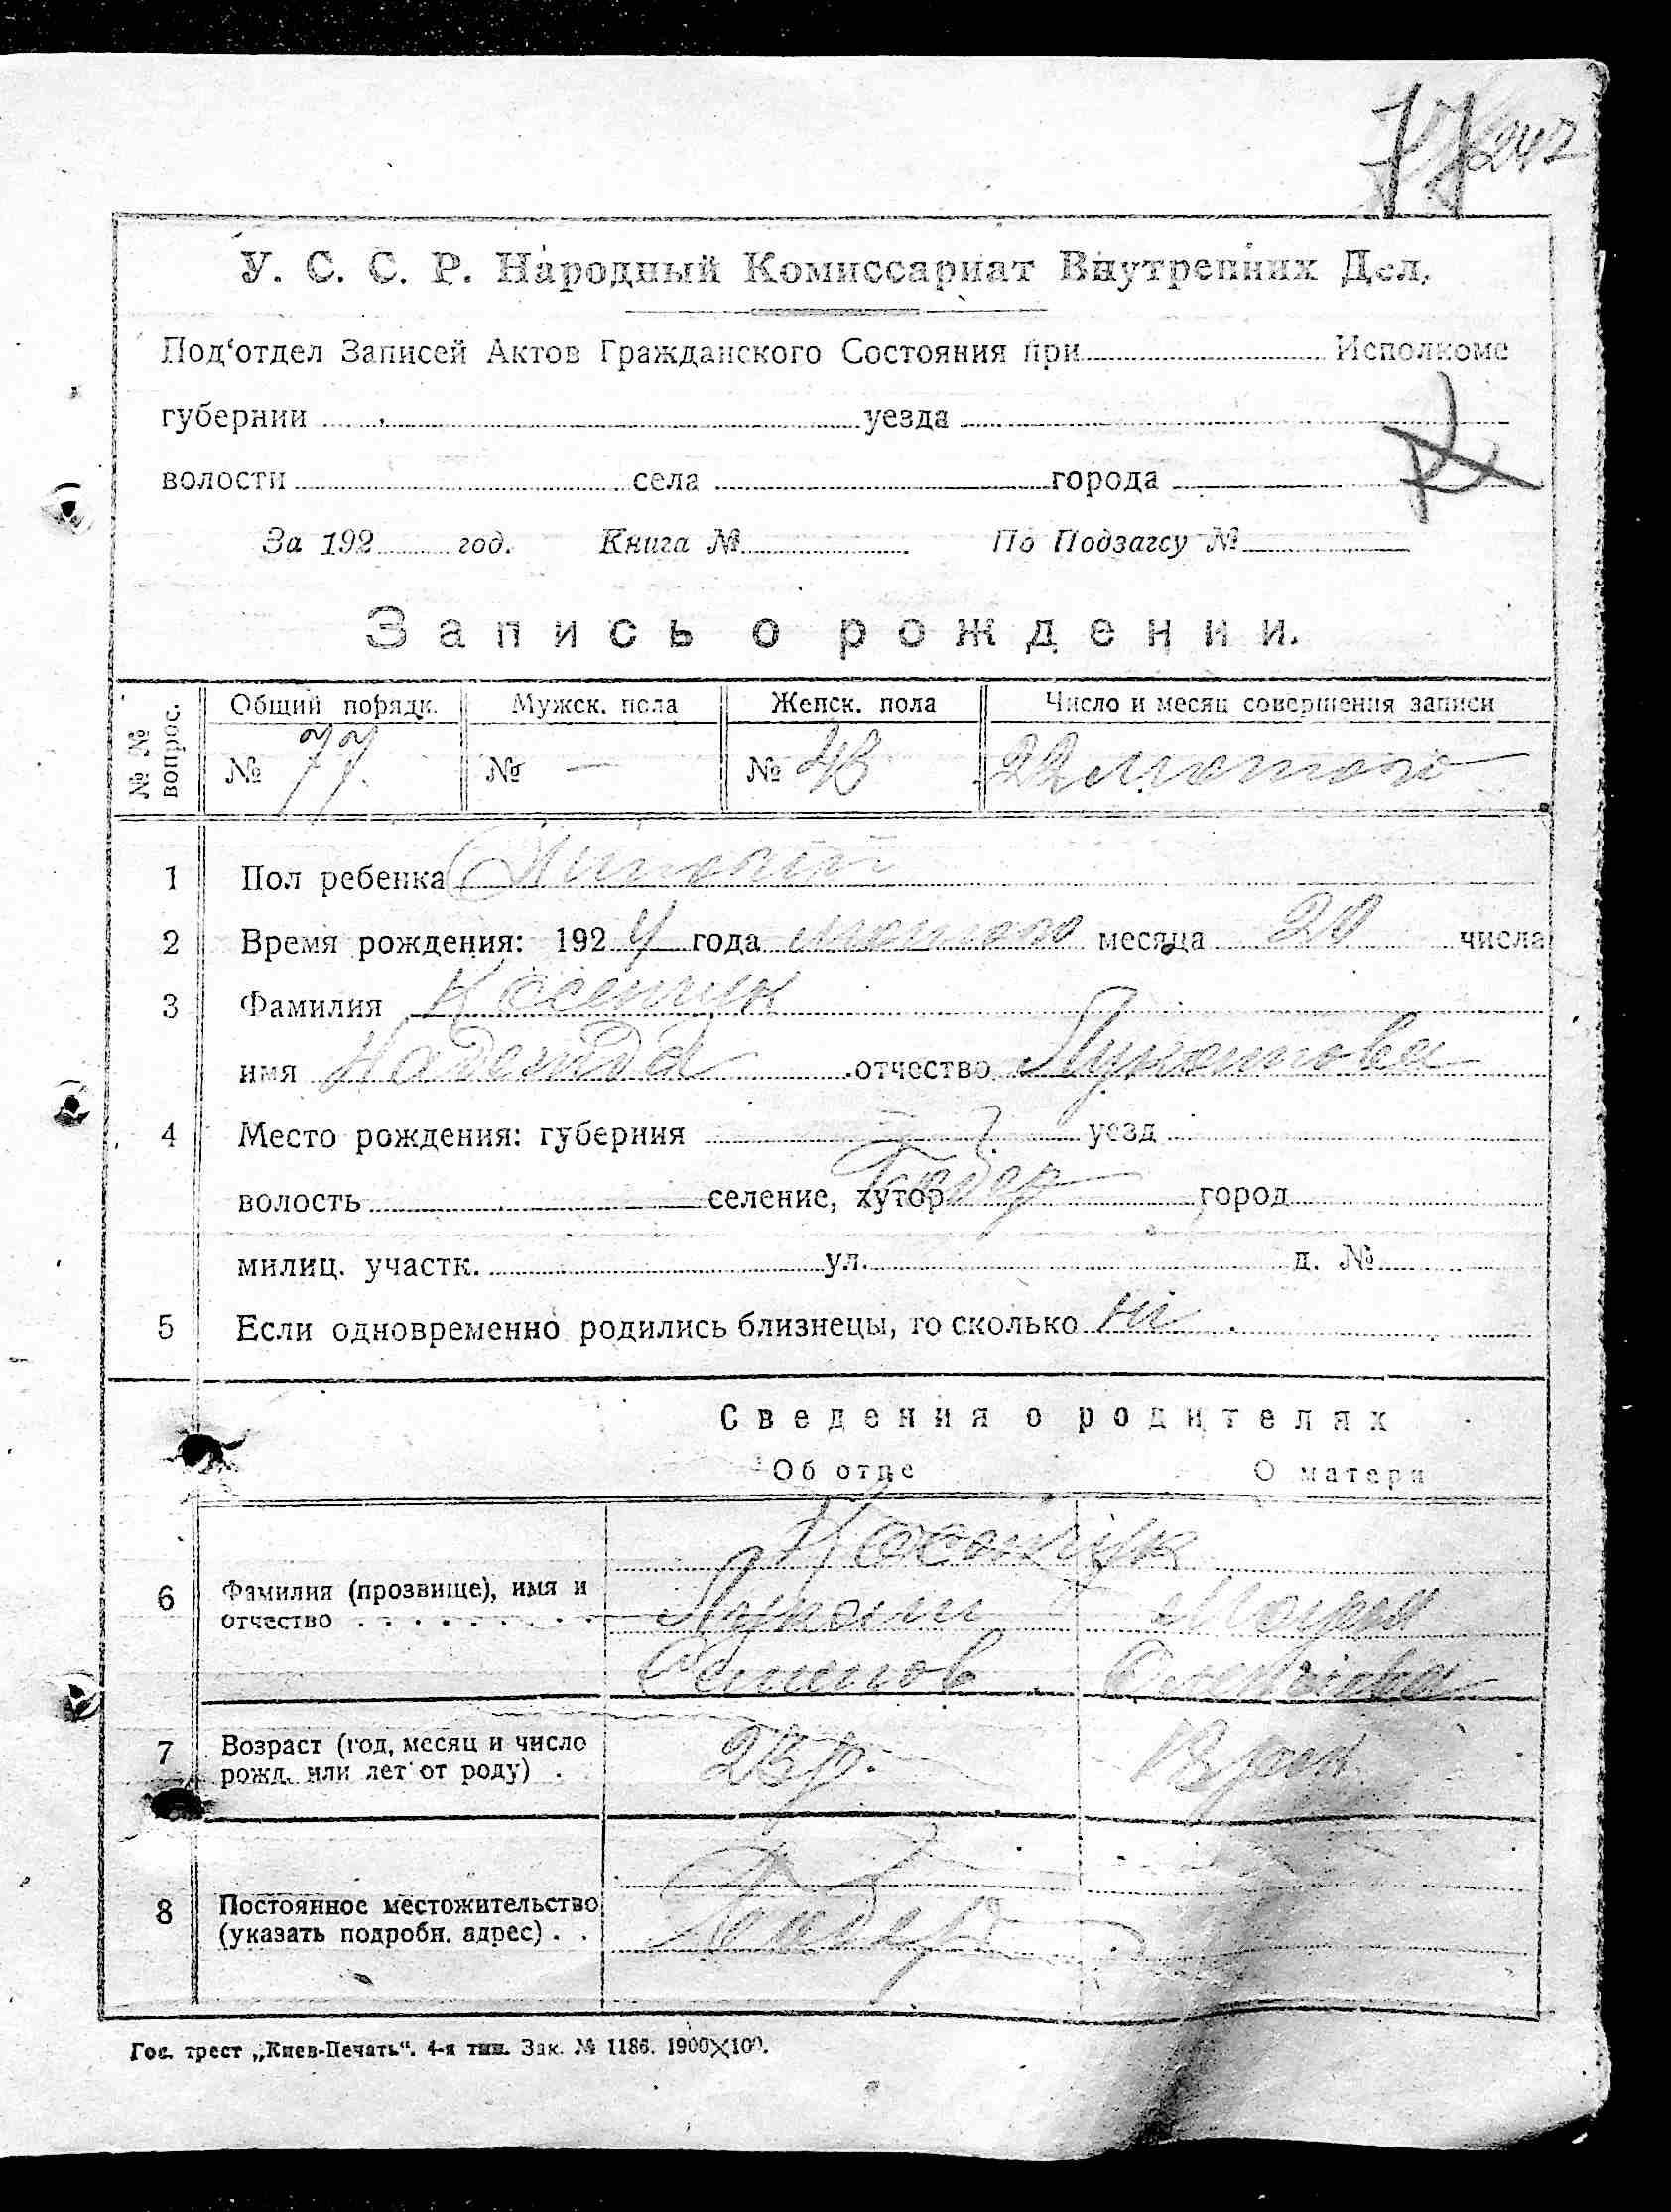 77 242
У. С. С. Р. Народный Комиссариат Внутренних Дел.
Под‘отдел Записей Актов Гражданского Состояния при Исполкоме
губернии уезда
волости села города
За 192 год. Книга № По Подзагсу №
Запись о рождении.
№ № вопрос. Общий порядк. Мужск. пола Женск. пола Число и месяц совершения записи
№ 77 № — № 43 22 лютого
1 Пол ребенка Жіночий
2 Время рождения: 1924 года лютого месяца 20 числа
3 Фамилия Косенчук
имя Надежда отчество Лукашова
4 Место рождения: губерния уезд
волость селение, хутор город
милиц. участк. ул. д. №
5 Если одновременно родились близнецы, то сколько ні
Сведения о родителях
Об отце О матери
Косенчук
6 Фамилия (прозвище), имя и Лукаш Марія
отчество Семенов
7 Возраст (год, месяц и число
рожд. или лет от роду)
8 Постоянное местожительство
(указать подробн. адрес)
Гос. трест „Киев-Печать“. 4-я тип. Зак. № 1186. 1900×100.